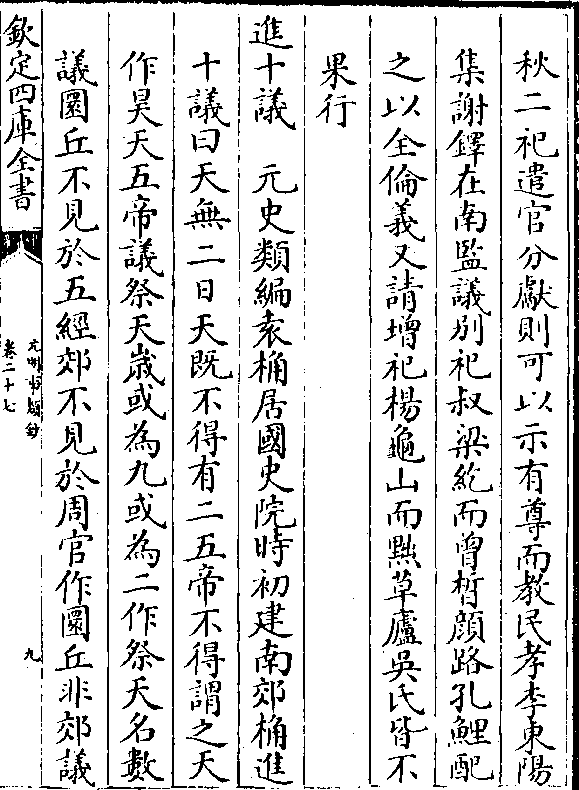 秋二祀遣官分獻則可以示有尊而教民孝李東陽
集謝鐸在南監議别祀叔梁紇而曾晳顔路孔鯉配
之以全倫義又請增祀楊龜山而黜草廬吳氏皆不
果行
進十議　元史類編袁桷居國史院時初建南郊桷進
十議曰天無二日天既不得有二五帝不得謂之天
作昊天五帝議祭天嵗或為九或為二作祭天名數
議圜丘不見於五經郊不見於周官作圜丘非郊議
欽定四庫全書
元明事類鈔
卷二十七
九